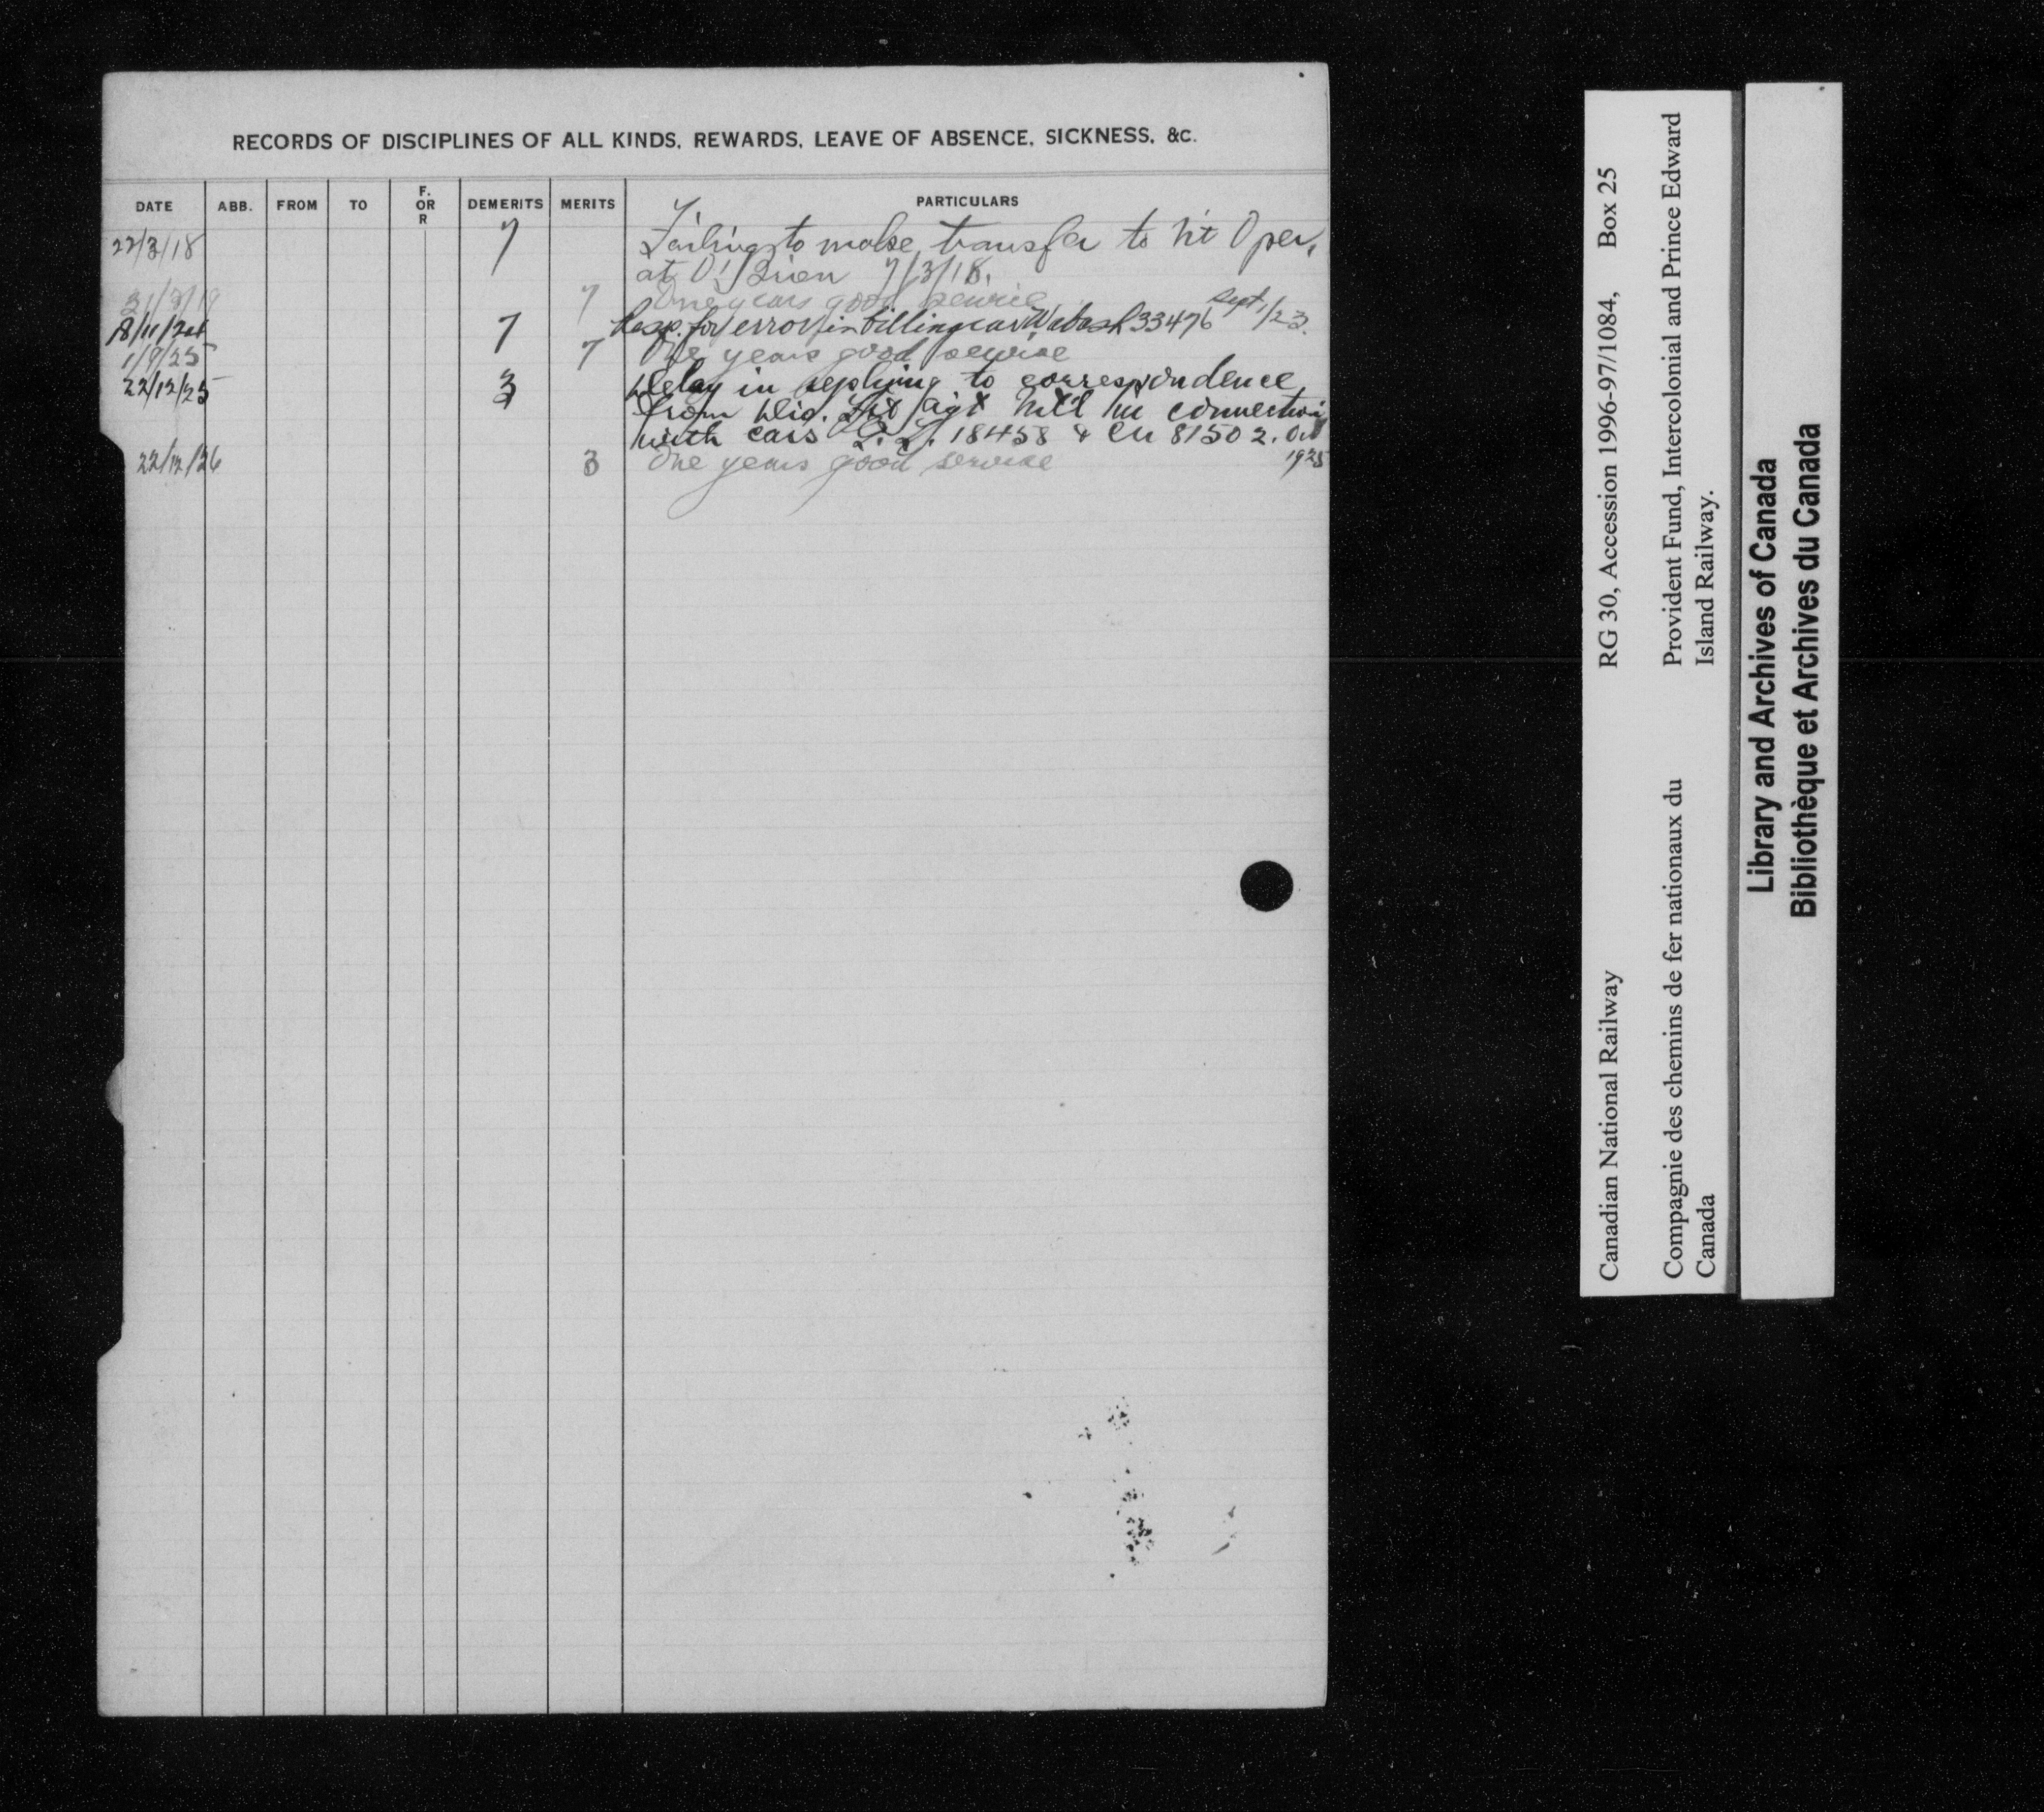 RECORDS OF DISCIPLINES OF ALL KINDS, REWARDS, LEAVE OF ABSENCE, SICKNESS, &C.
DATE ABB. FROM TO F. OR R DEMERITS MERITS PARTICULARS
22/3/18 7 Failing to make transfer to Nt Oper.
at O'Brien 7/3/18.
31/3/19 7 One years good service
18/11/24 7 Resp. for error in billing car Wabash 33476 Sept 1/23.
1/9/25 7 One years good service
22/12/25 3 Delay in replying to correspondence
from Div. Frt Agt Mt'l in connection
with cars 18458 & CN 81502. Oct
1925
22/12/26 3 One years good service
Canadian National Railway RG 30, Accession 1996-97/1084, Box 25
Compagnie des chemins de fer nationaux du Provident Fund, Intercolonial and Prince Edward
Canada Island Railway.
Library and Archives of Canada
Bibliothèque et Archives du Canada